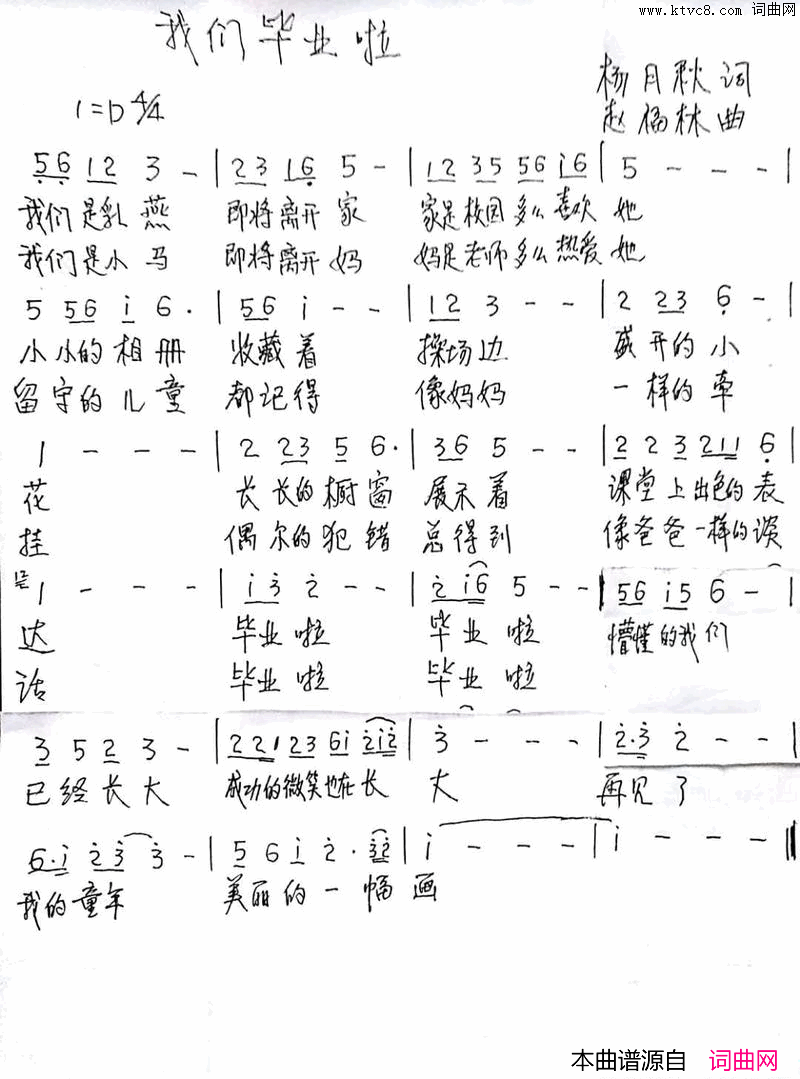 www.ktvc8.com 词曲网
我们毕业啦
杨月秋词
1=D 4/4
赵 林曲
5 6 1 2 3 - | 2 3 1 6 5 - | 1 2 3 5 5 6 i 6 | 5 - - - |
我们是乳燕 即将离开家 家是校园多么喜欢她
我们是小马 即将离开妈 妈是老师多么热爱她
5 5 6 i 6 · | 5 6 i - - | 1 2 3 - - | 2 2 3 6 - |
小小的相册 收藏着 操场边 盛开的小
留守的儿童 都记得 像妈妈 一样的牵
1 - - - | 2 2 3 5 6 · | 3 6 5 - - | 2 2 3 2 1 1 6 |
花 长长的橱窗 展示着 课堂上出色的表
挂 偶尔的犯错 总得到 像爸爸一样的谈
1 - - - | i 3 2 - - | 2 i 6 5 - - | 5 6 i 5 6 - |
达 毕业啦 毕业啦 懵懂的我们
话 毕业啦 毕业啦
3 5 2 3 - | 2 2 1 2 3 6 i 2 i 2 | 3 - - - | 2 · 3 2 - - |
已经长大 成功的微笑也在长 大 再见了
6 · i 2 3 3 - | 5 6 i 2 · 3 2 | i - - - | i - - - ‖
我的童年 美丽的一幅画
本曲谱源自 词曲网